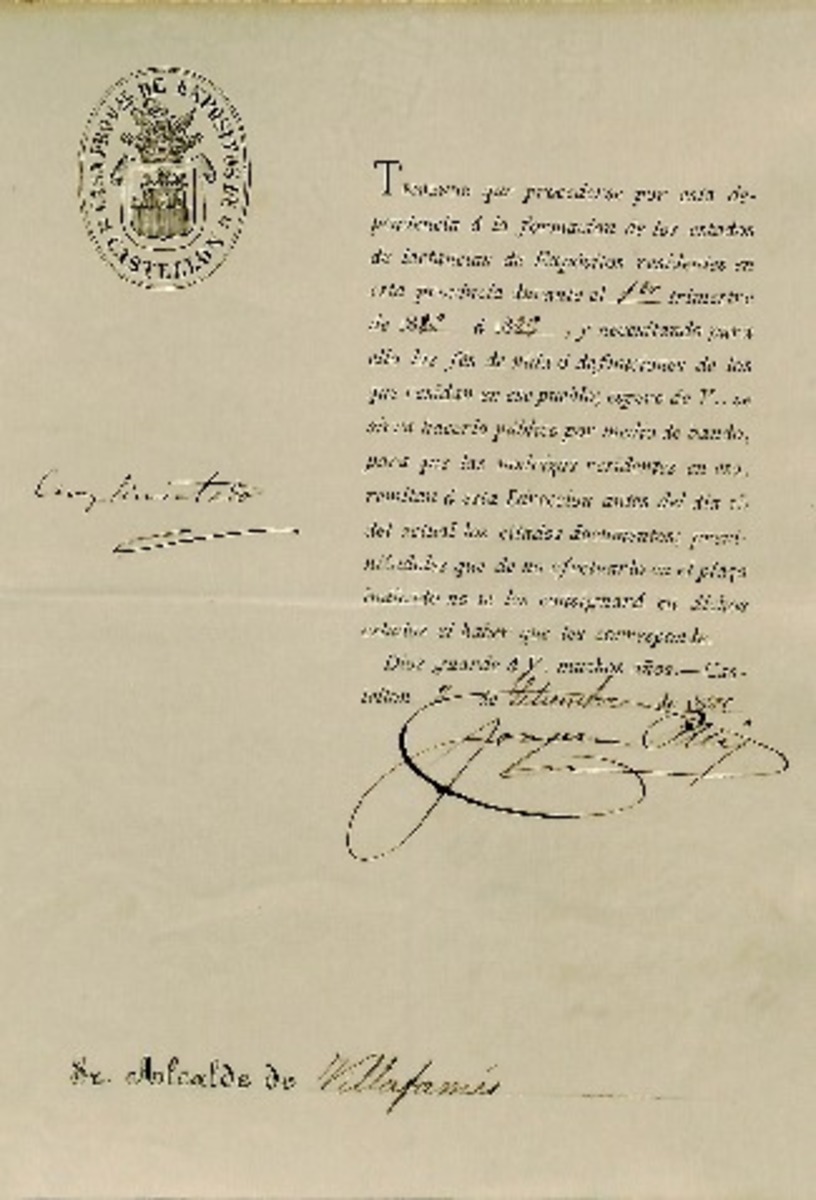 CASA PROVAL DE EXPOSITOS DE
CASTELLÓN
Teniendo que procederse por esta de-
pendencia á la formacion de los estados
de lactancias de Expósitos residentes en
esta provincia durante el 1er trimestre
de á , y necesitando para
ello las fés de vida ó defunciones de los
que residan en ese pueblo, espero de V. se
sirva hacerlo público por medio de bando,
para que las nodrizas residentes en ese,
remitan á esta Direccion antes del dia
del actual los citados documentos; previ-
niéndoles que de no efectuarlo en el plazo
indicado no se les consignará en dichos
estados el haber que les corresponde.
Dios guarde á V. muchos años.—Cas-
tellon 2 de Setiembre de
Cumplimentado
Sr. Alcalde de Villafamés